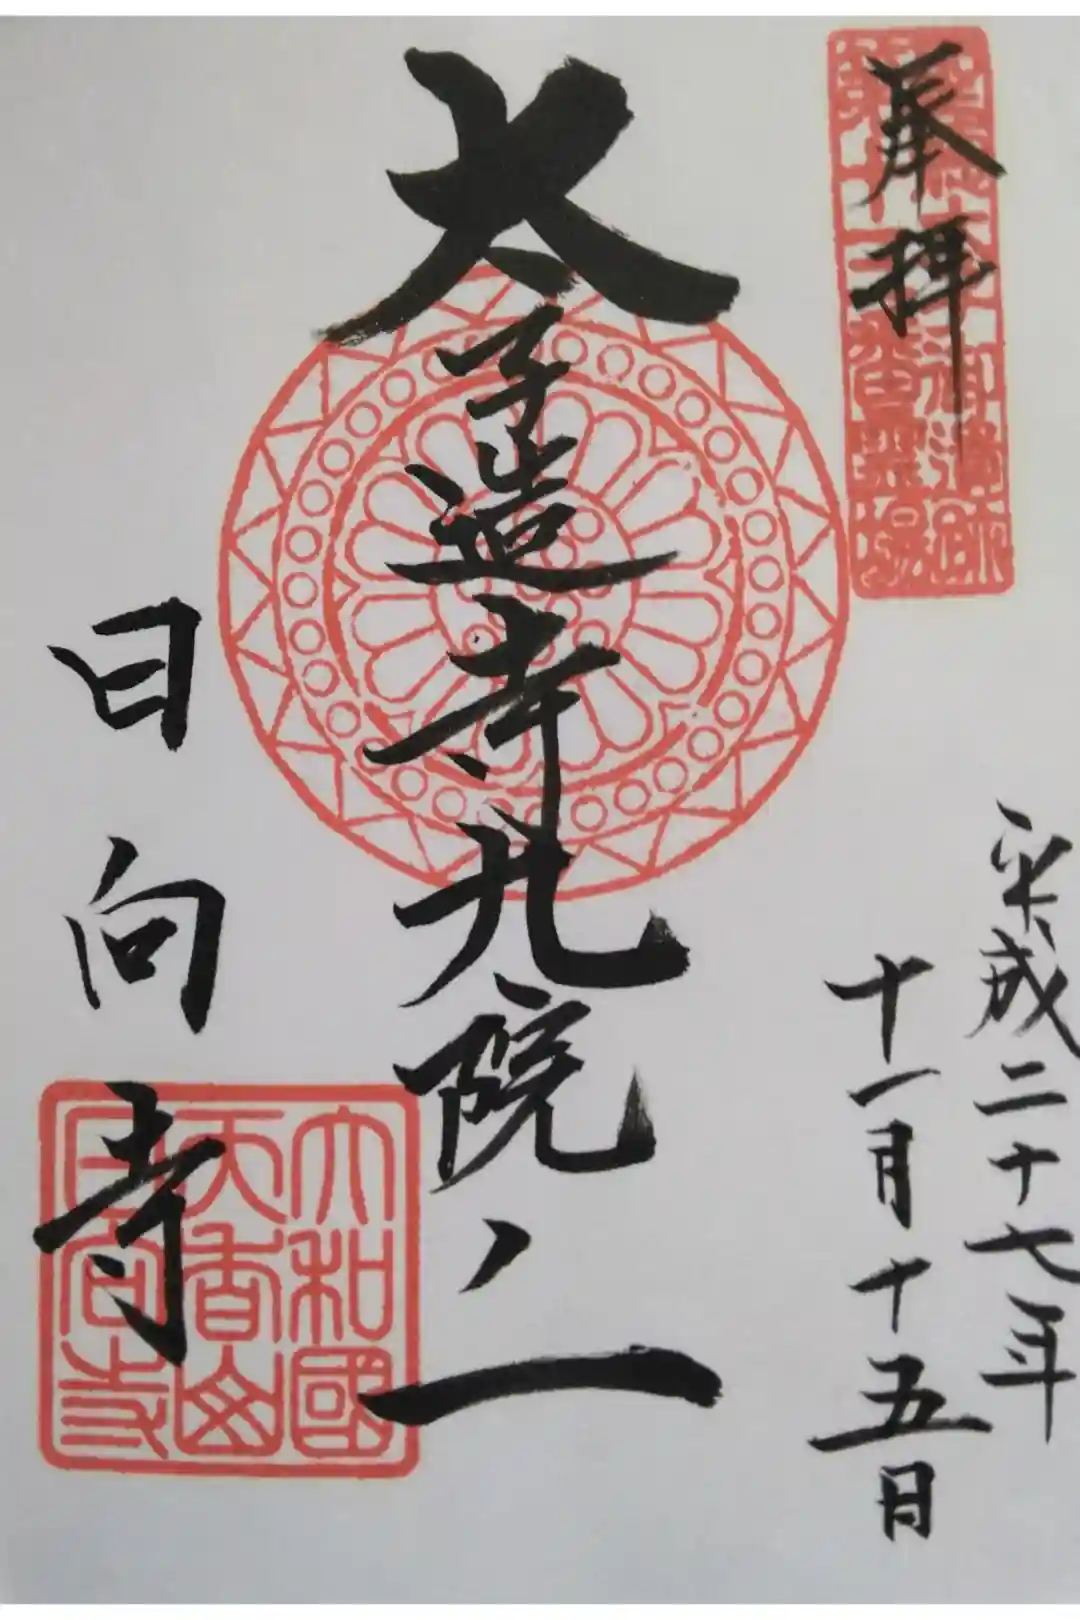 奉拝
平成二十七年
十一月十五日
太子造寺九院ノ一
日向寺
大和國
天香山
日向寺